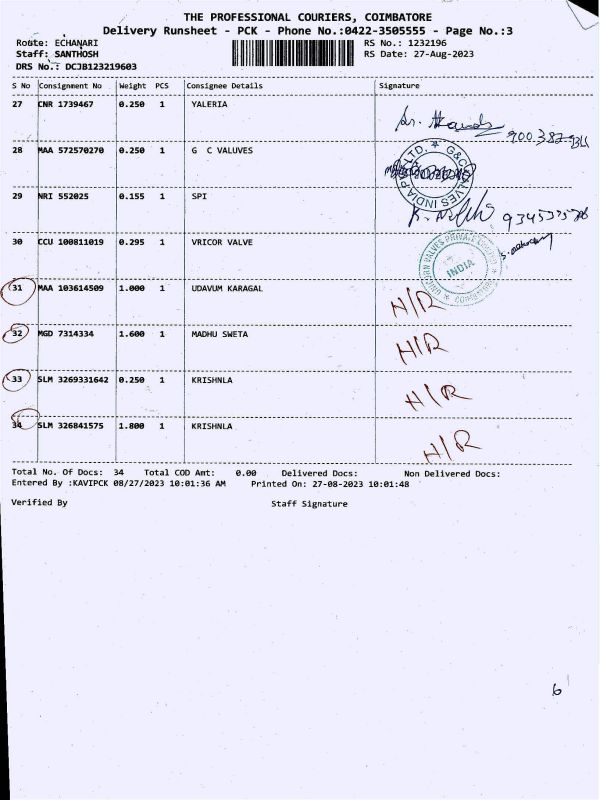 THE PROFESSIONAL COURIERS, COIMBATORE
Delivery Runsheet - PCK - Phone No.:0422-3505555 - Page No.:3
Route: ECHANARI RS No.: 1232196
Staff: SANTHOSH RS Date: 27-Aug-2023
DRS No.: DCJB123219603
S No Consignment No Weight PCS Consignee Details Signature
27 CNR 1739467 0.250 1 YALERIA
28 MAA 572570270 0.250 1 G C VALUVES
29 NRI 552025 0.155 1 SPI
30 CCU 100811019 0.295 1 VRICOR VALVE
INDIA
31 MAA 103614509 1.000 1 UDAVUM KARAGAL N/R
32 MGD 7314334 1.600 1 MADHU SWETA N/R
33 SLM 3269331642 0.250 1 KRISHNLA N/R
34 SLM 326841575 1.800 1 KRISHNLA N/R
Total No. Of Docs: 34 Total COD Amt: 0.00 Delivered Docs: Non Delivered Docs:
Entered By :KAVIPCK 08/27/2023 10:01:36 AM Printed On: 27-08-2023 10:01:48
Verified By Staff Signature
6